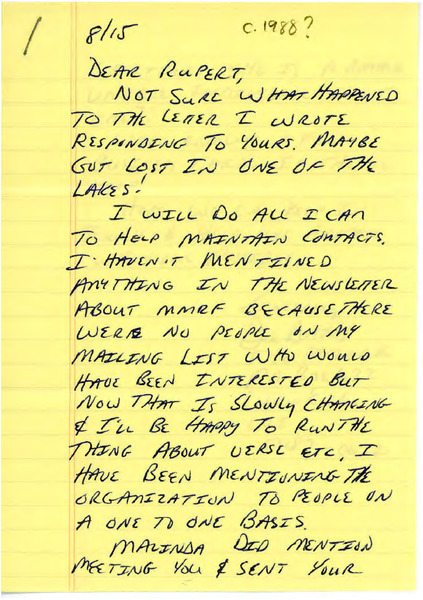 /
8/15 c. 1988?
DEAR RUPERT,
NOT SURE WHAT HAPPENED
TO THE LETTER I WROTE
RESPONDING TO YOURS. MAYBE
GOT LOST IN ONE OF THE
LAKES!
I WILL DO ALL I CAN
TO HELP MAINTAIN CONTACTS.
I HAVEN'T MENTIONED
ANYTHING IN THE NEWSLETTER
ABOUT MMRF BECAUSE THERE
WERE NO PEOPLE ON MY
MAILING LIST WHO WOULD
HAVE BEEN INTERESTED BUT
NOW THAT IS SLOWLY CHANGING
& I'LL BE HAPPY TO RUN THE
THING ABOUT VERSL ETC. I
HAVE BEEN MENTIONING THE
ORGANIZATION TO PEOPLE ON
A ONE TO ONE BASIS.
MALINDA DID MENTION
MEETING YOU & SENT YOUR